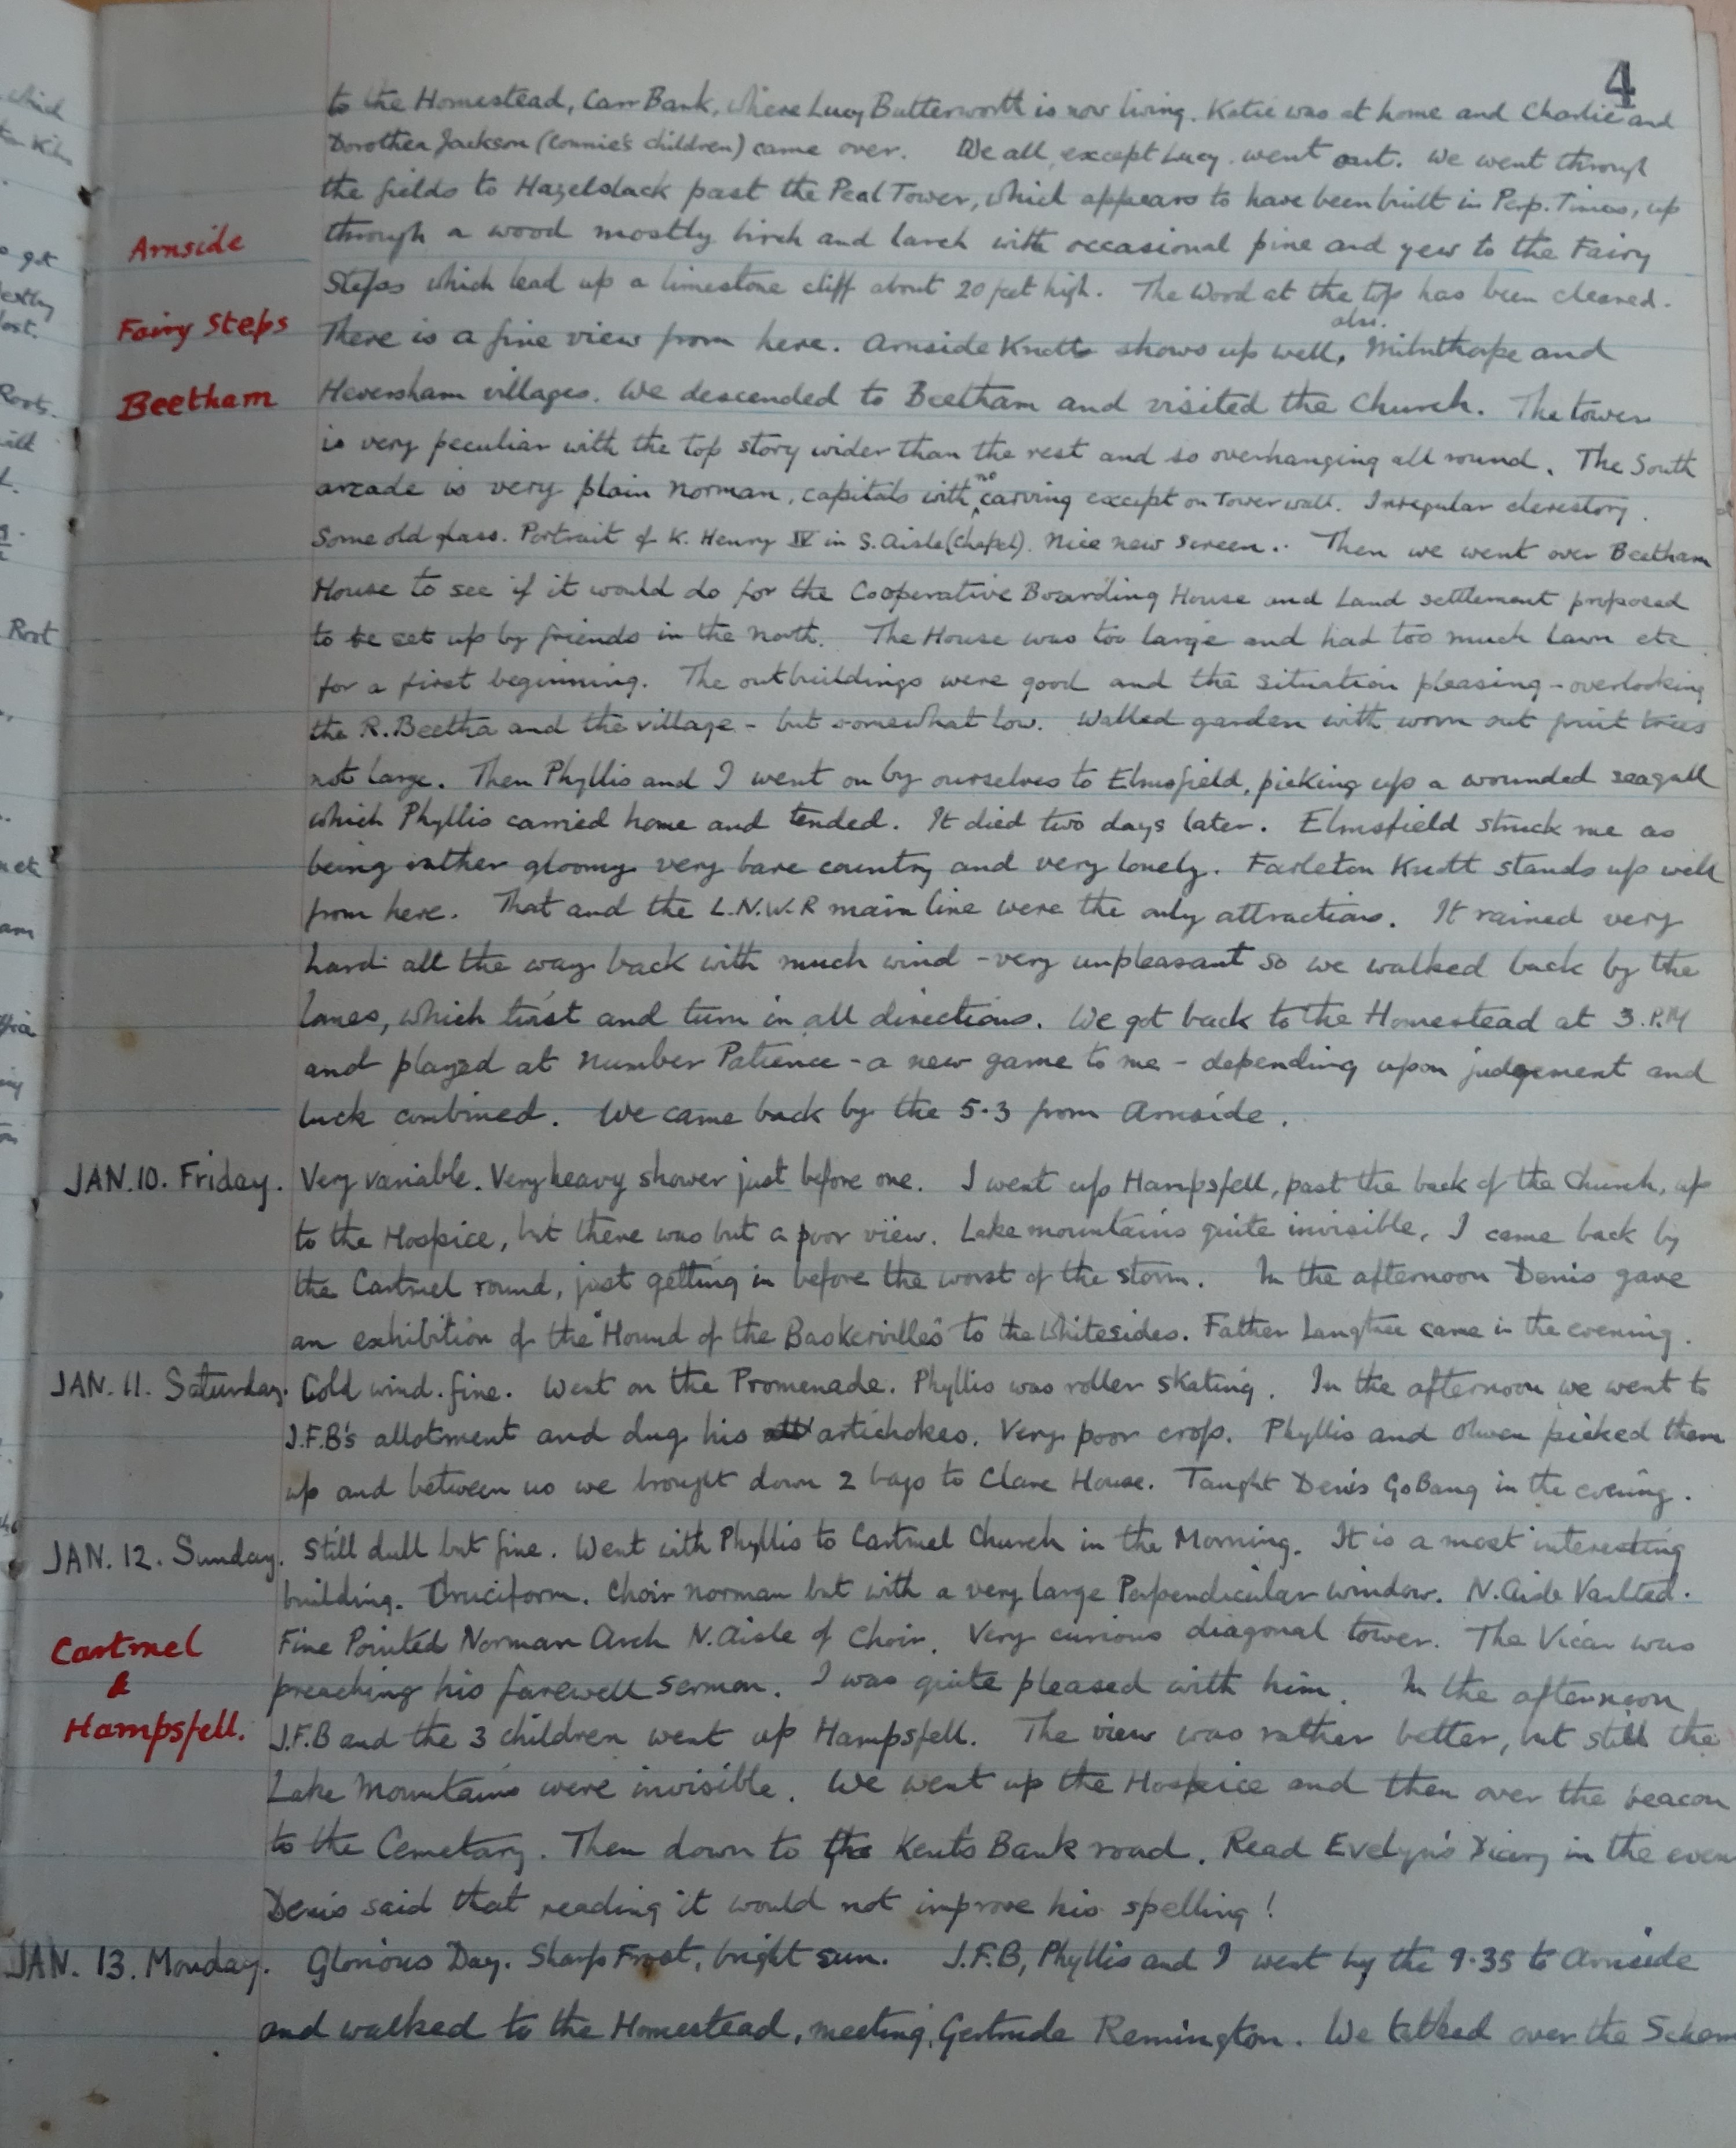 4
to the Homestead, Carr Bank, where Lucy Butterworth is now living. Katie was at home and Charlie and
Dorothea Jackson (Connie's children) came over. We all, except Lucy, went out. We went through
the fields to Hazelslack past the Peal Tower, which appears to have been built in Perp. Times, up
Arnside
through a wood mostly birch and larch with occasional pine and yew to the Fairy
Steps which lead up a limestone cliff about 20 feet high. The wood at the top has been cleared.
Fairy Steps
There is a fine view from here. Arnside Knott shows up well, also Milnthorpe and
Beetham
Heversham villages. We descended to Beetham and visited the Church. The tower
is very peculiar with the top story wider than the rest and so overhanging all round. The South
arcade is very plain Norman, capitals with no carving except on Tower wall. Irregular clerestory.
Some old glass. Portrait of K. Henry IV in S. Aisle (Chapel). Nice new screen.. Then we went over Beetham
House to see if it would do for the Cooperative Boarding House and Land settlement proposed
to be set up by friends in the north. The House was too large and had too much lawn etc
for a first beginning. The outbuildings were good and the situation pleasing - overlooking
the R. Beetha and the village - but somewhat low. Walled garden with worn out fruit trees
not large. Then Phyllis and I went on by ourselves to Elmsfield, picking up a wounded seagull
which Phyllis carried home and tended. It died two days later. Elmsfield struck me as
being rather gloomy very bare country and very lonely. Farleton Knott stands up well
from here. That and the L.N.W.R main line were the only attractions. It rained very
hard all the way back with much wind - very unpleasant so we walked back by the
lanes, which twist and turn in all directions. We got back to the Homestead at 3.P.M
and played at Number Patience - a new game to me - depending upon judgement and
luck combined. We came back by the 5.3 from Arnside.
JAN. 10. Friday. Very variable. Very heavy shower just before one. I went up Hampsfell, past the back of the Church, up
to the Hospice, but there was but a poor view. Lake mountains quite invisible. I came back by
the Cartmel round, just getting in before the worst of the storm. In the afternoon Denis gave
an exhibition of the "Hound of the Baskervilles" to the Whitesides. Father Langtree came in the evening.
JAN. 11. Saturday. Cold wind. fine. Went on the Promenade. Phyllis was roller skating. In the afternoon we went to
J.F.B's allotment and dug his artichokes. Very poor crop. Phyllis and Olwen picked them
up and between us we brought down 2 bags to Clare House. Taught Denis GoBang in the evening.
JAN. 12. Sunday. Still dull but fine. Went with Phyllis to Cartmel Church in the Morning. It is a most interesting
building. Cruciform. Choir Norman but with a very large Perpendicular window. N. Aisle Vaulted.
Cartmel
&
Hampsfell.
Fine Pointed Norman Arch N. Aisle of Choir. Very curious diagonal tower. The Vicar was
preaching his farewell sermon. I was quite pleased with him. In the afternoon
J.F.B and the 3 children went up Hampsfell. The view was rather better, but still the
Lake Mountains were invisible. We went up the Hospice and then over the beacon
to the Cemetary. Then down to the Kents Bank road. Read Evelyn's Diary in the even
Denis said that reading it would not improve his spelling!
JAN. 13. Monday. Glorious Day. Sharp Frost, bright sun. J.F.B, Phyllis and I went by the 9.35 to Arnside
and walked to the Homestead, meeting Gertrude Remington. We talked over the Schem